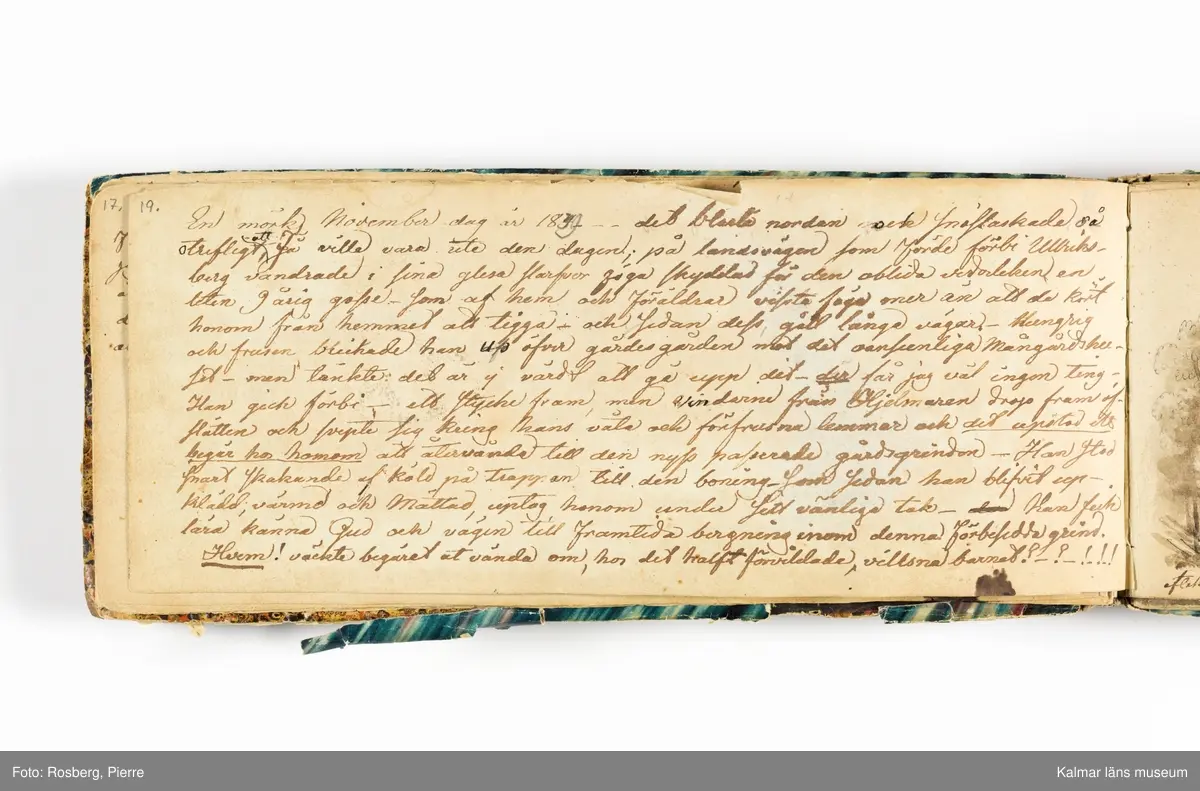 17. 19.
En mörk November dag år 183 -- det blåste nordan och snöslaskade så
otrefligt att få ville vara ute den dagen; på landsvägen som förde förbi Ullriks-
berg vandrade i sina glesa slarfvor föga skyddad för den oblida väderleken en
liten 9 årig gosse – som af hem och föräldrar visste föga mer än att de kört
honom från hemmet att tigga – och sedan dess, gått långa vägar – Hungrig
och frusen blickade han up öfver gärdesgården mot det oansenliga Mangårdshu-
set – men tänkte: det är ej värdt att gå upp dit – der får jag väl ingen ting –
Han gick förbi – ett stycke fram, men vindarne från Hjelmaren drogo fram öf-
slätten och svepte sig kring hans våta och förfrusna lemmar och det uppstod ett
begär hos honom att återvända till den nyss passerade gårdsgrinden – Han stod
snart skakande af köld på trappan till den boning – som sedan han blifvit up-
klädd, värmd och Mättad, uptog honom under sitt vänliga tak – han fick
lära känna Gud och vägen till framtida bergning inom denna förbisedda grind.
Hvem! väckte begäret at vända om, hos det halft förvildade, villsna barnet? – ? – !!!!
Foto: Rosberg, Pierre
Kalmar läns museum